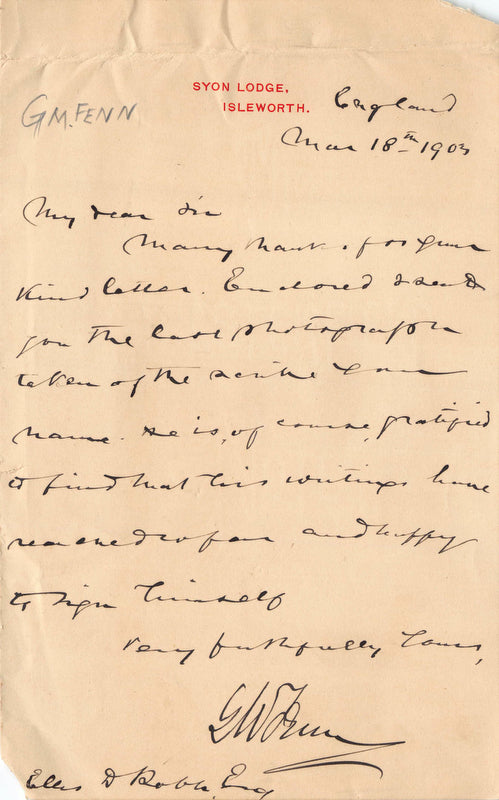 SYON LODGE,
ISLEWORTH.
England
G M. FENN
Mar 18th 1903
My dear Sir
Many thanks for your
kind letter. Enclosed I send
you the last photograph
taken of the scribe you
name. He is, of course, gratified
to find that his writings have
reached so far and happy
to sign himself
Very faithfully Yours,
G M Fenn
Ellis D Robb, Esq